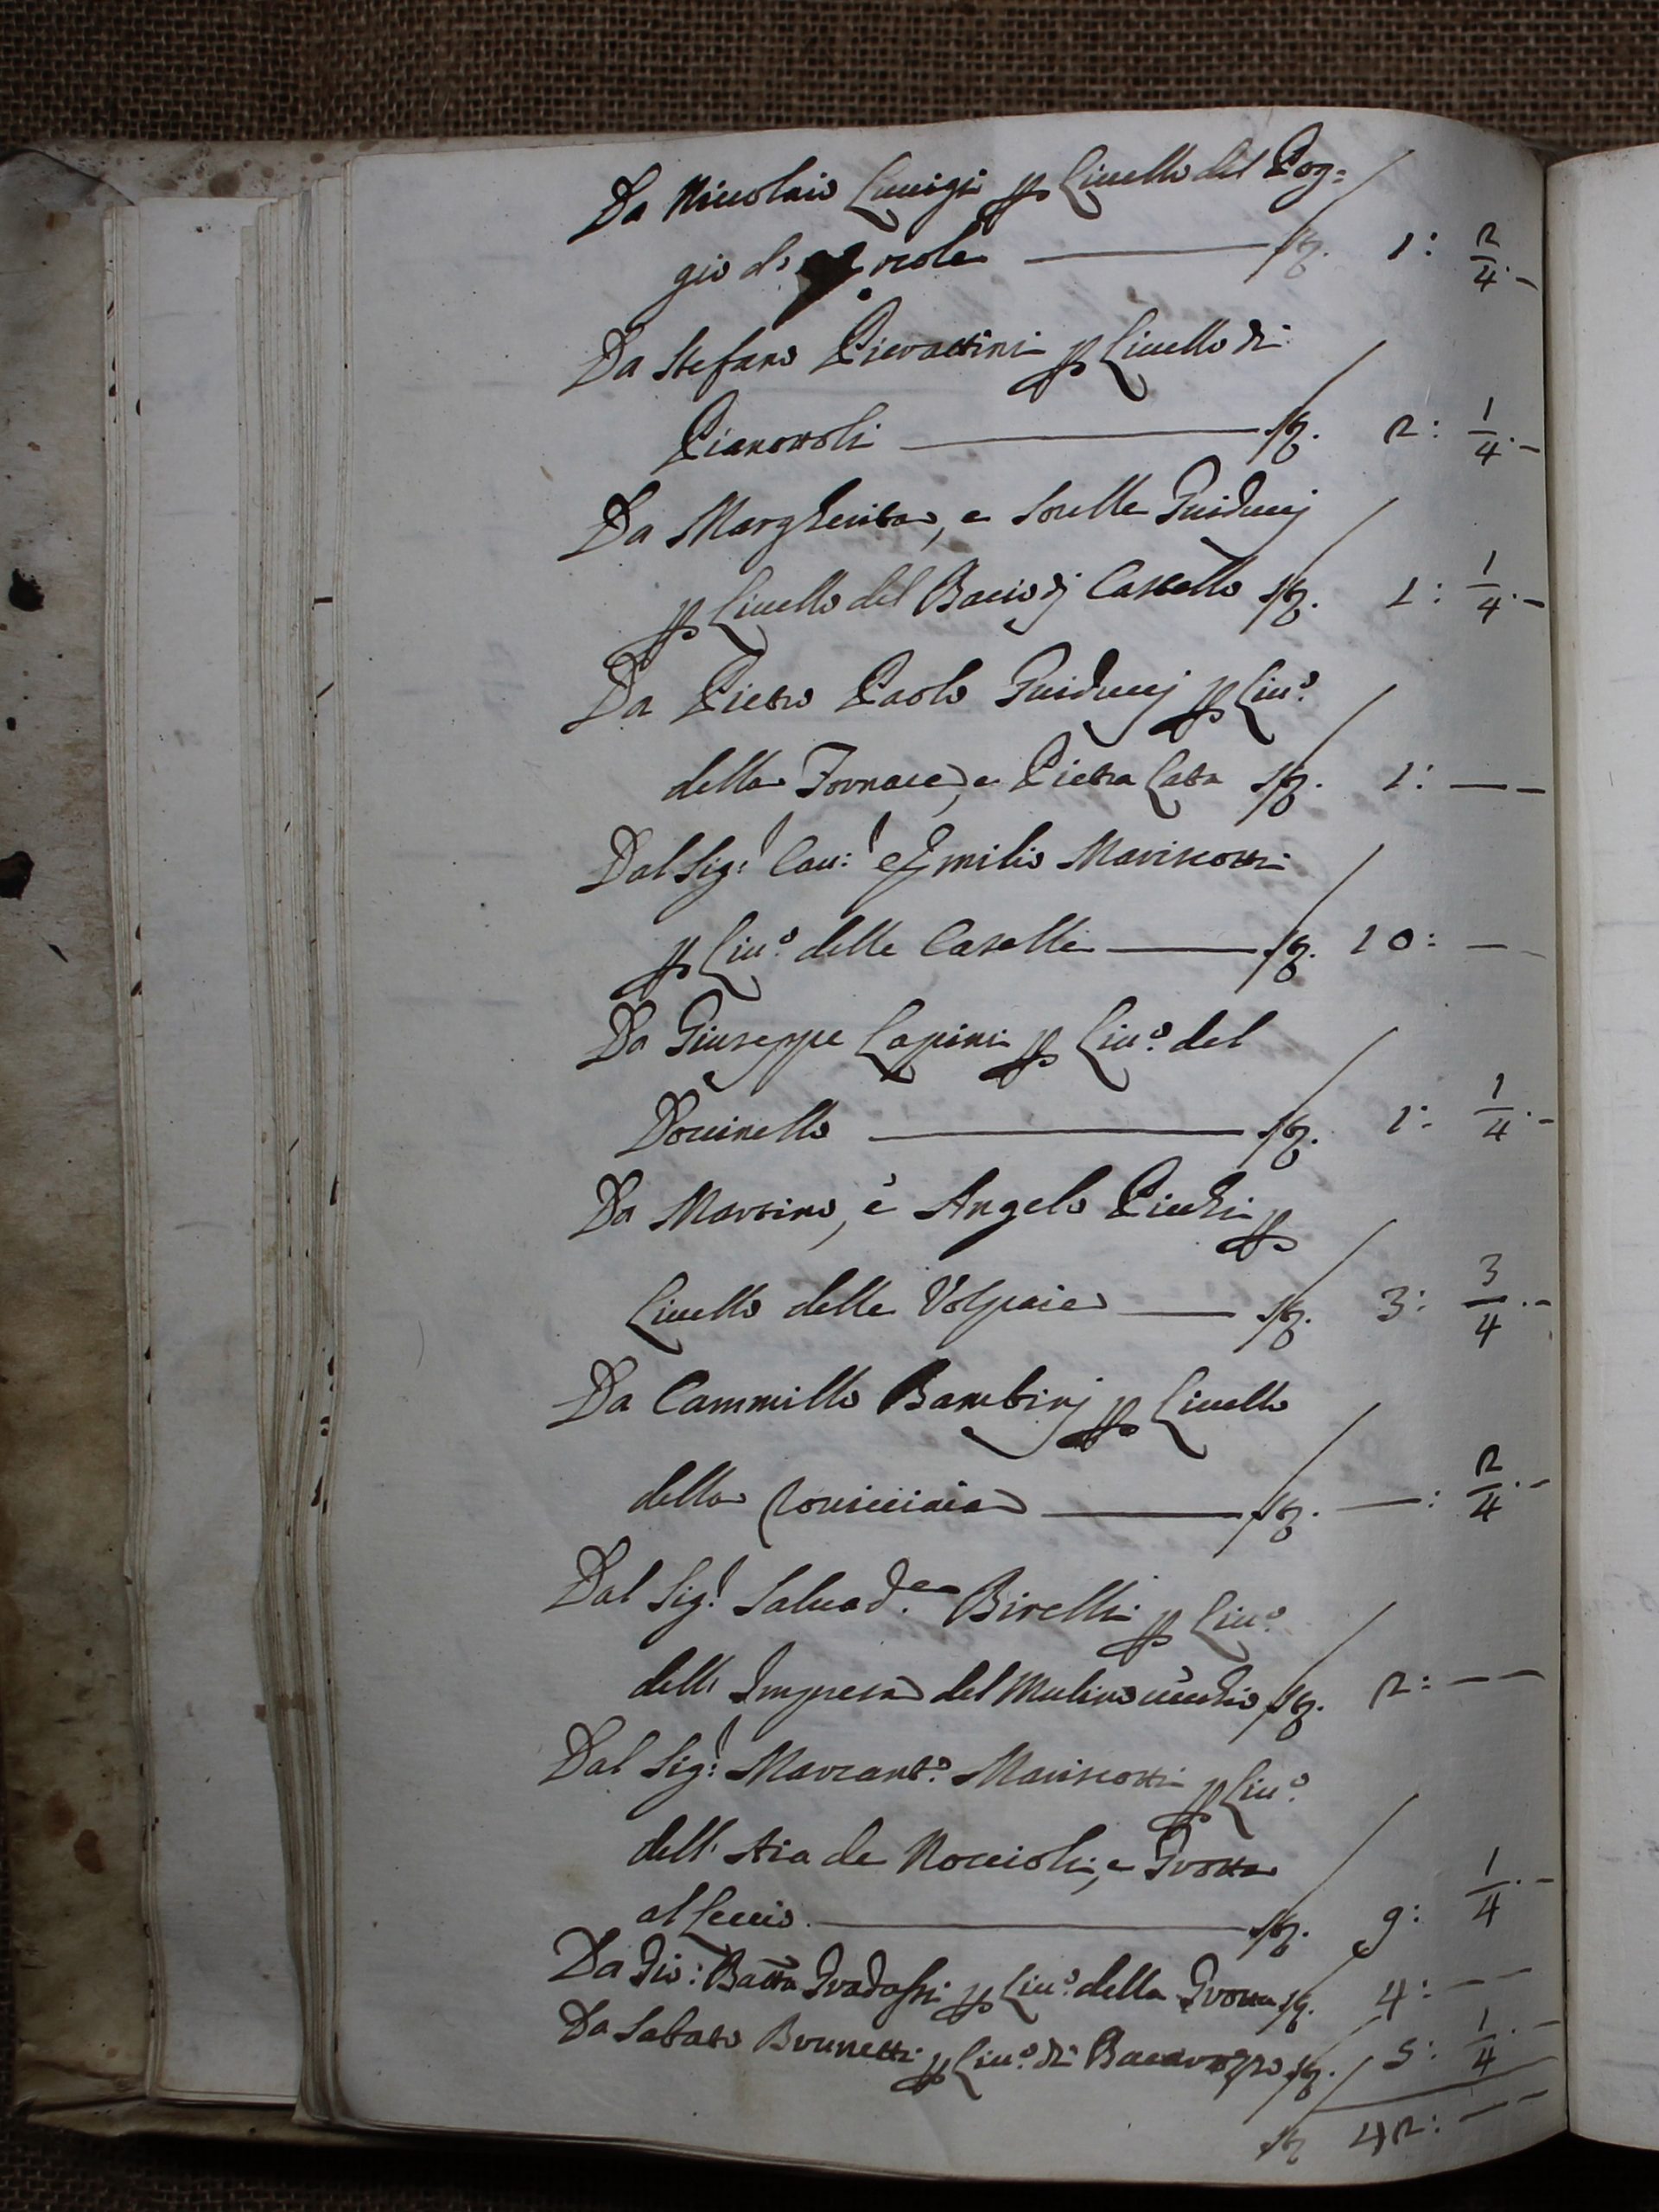 Da Niccolaio Luccigi p Liuello del Pog=
gio di rcole — st. 1: 2/4.–
Da Stefano Pievattini p Liuello di
Pianottoli — st. 2: 1/4.–
Da Margherita, e Sorelle Guiducij
p Liuello del Bacio dj Castello st. 1: 1/4.–
Da Pietro Paolo Guiducij p Liu.o
della Fornace, e Pietra Lata st. 1: — –
Dal Sig:r Cau:r Emilio Mariscotti
p Liu.o delle Caselle — st. 10: — –
Da Giuseppe Lapini p Liu.o del
Doccinello — st. 1: 1/4.–
Da Martino, è Angelo Picchi p
Liuello delle Volpaie — st. 3: 3/4.–
Da Cammillo Bambinj p Liuello
della — st. —: 2/4.–
Dal Sig.r Saluad.e Birelli p Liu.o
dell' Impresa del Mulino uecchio st. 2: — —
Dal Sig:r Marcant.o Mariscotti p Liu.o
dell' Aia de Noccioli, e Grotta
al Leccio. — st. 9: 1/4.–
Da Gio: Batta Gradassi p Liu.o della Grotta st. 4: — —
Da Sabato Brunetti p Liu.o di st. 5: 1/4.–
st 42: — —